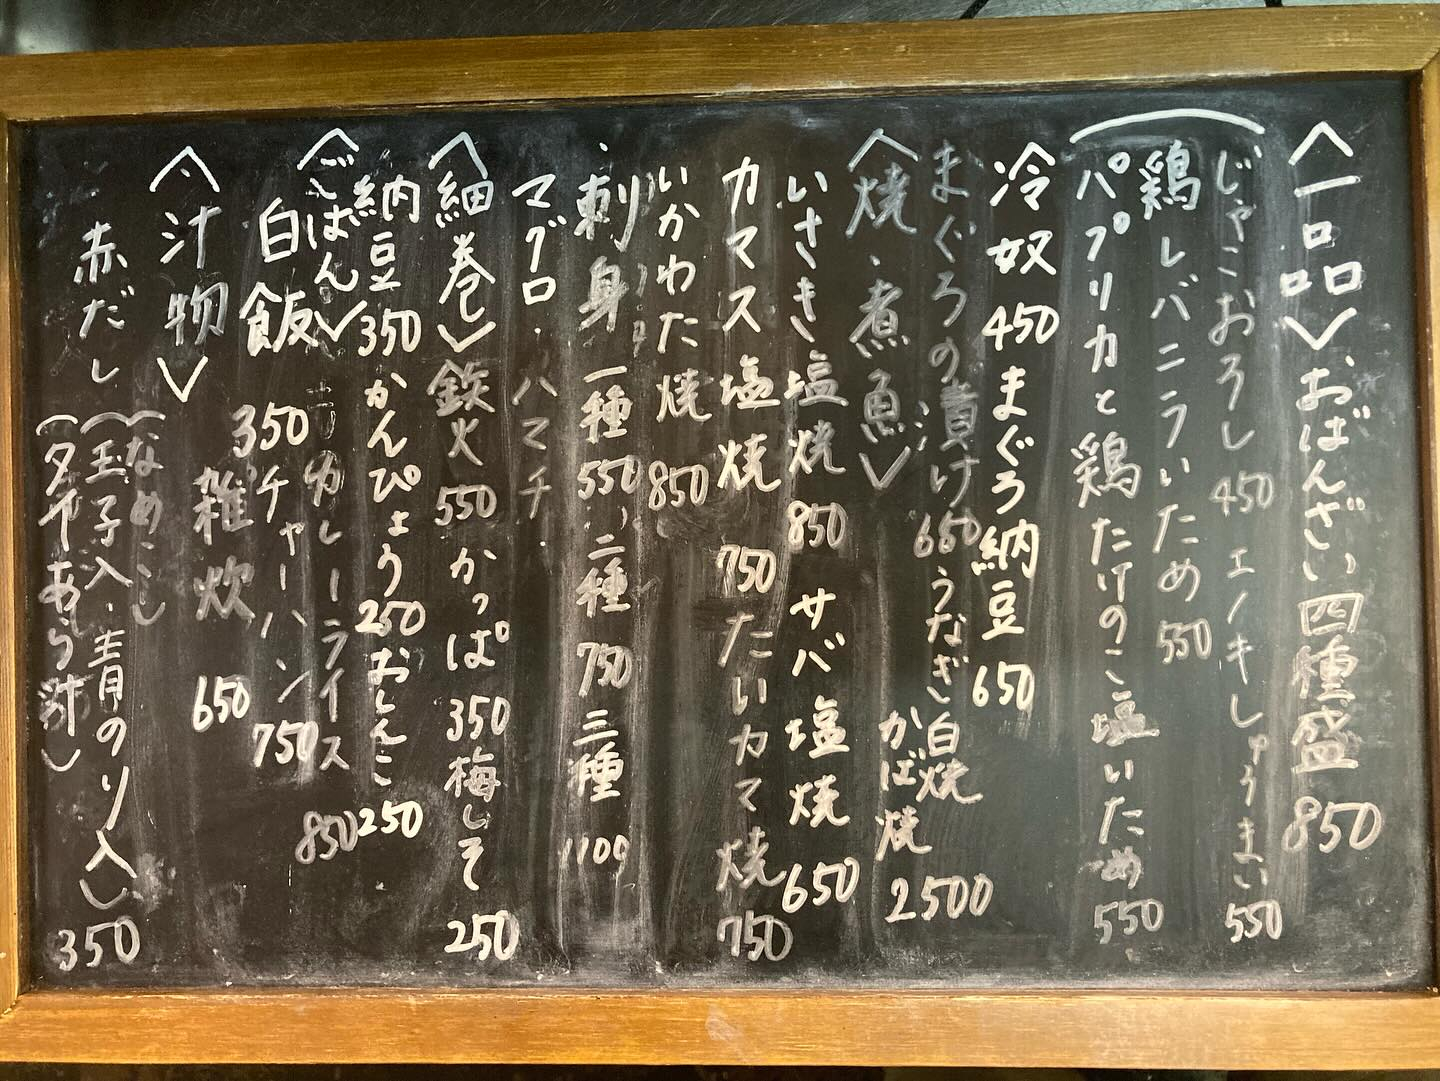 〈一品〉おばんざい四種盛 850
じゃこおろし 450 エノキしょうまい 550
鶏レバニラいため 550
パプリカと鶏たけのこ塩いため 550
冷奴 450 まぐろ納豆 650
まぐろの漬け 650 うなぎ 白焼 かば焼 2500
〈焼・煮魚〉
いさき塩焼 850 サバ塩焼 650
カマス塩焼 750 たいカマ焼 750
いかわた焼 850
刺身 一種 550 二種 750 三種 1100
マグロ・ハマチ
〈細巻〉鉄火 550 かっぱ 350 梅しそ 250
納豆 350 かんぴょう 250 おしんこ 250
〈ごはん〉カレーライス 850
白飯 350 チャーハン 750
雑炊 650
〈汁物〉
赤だし(なめこ)
(玉子入・青のり入) 350
(タイあら汁)